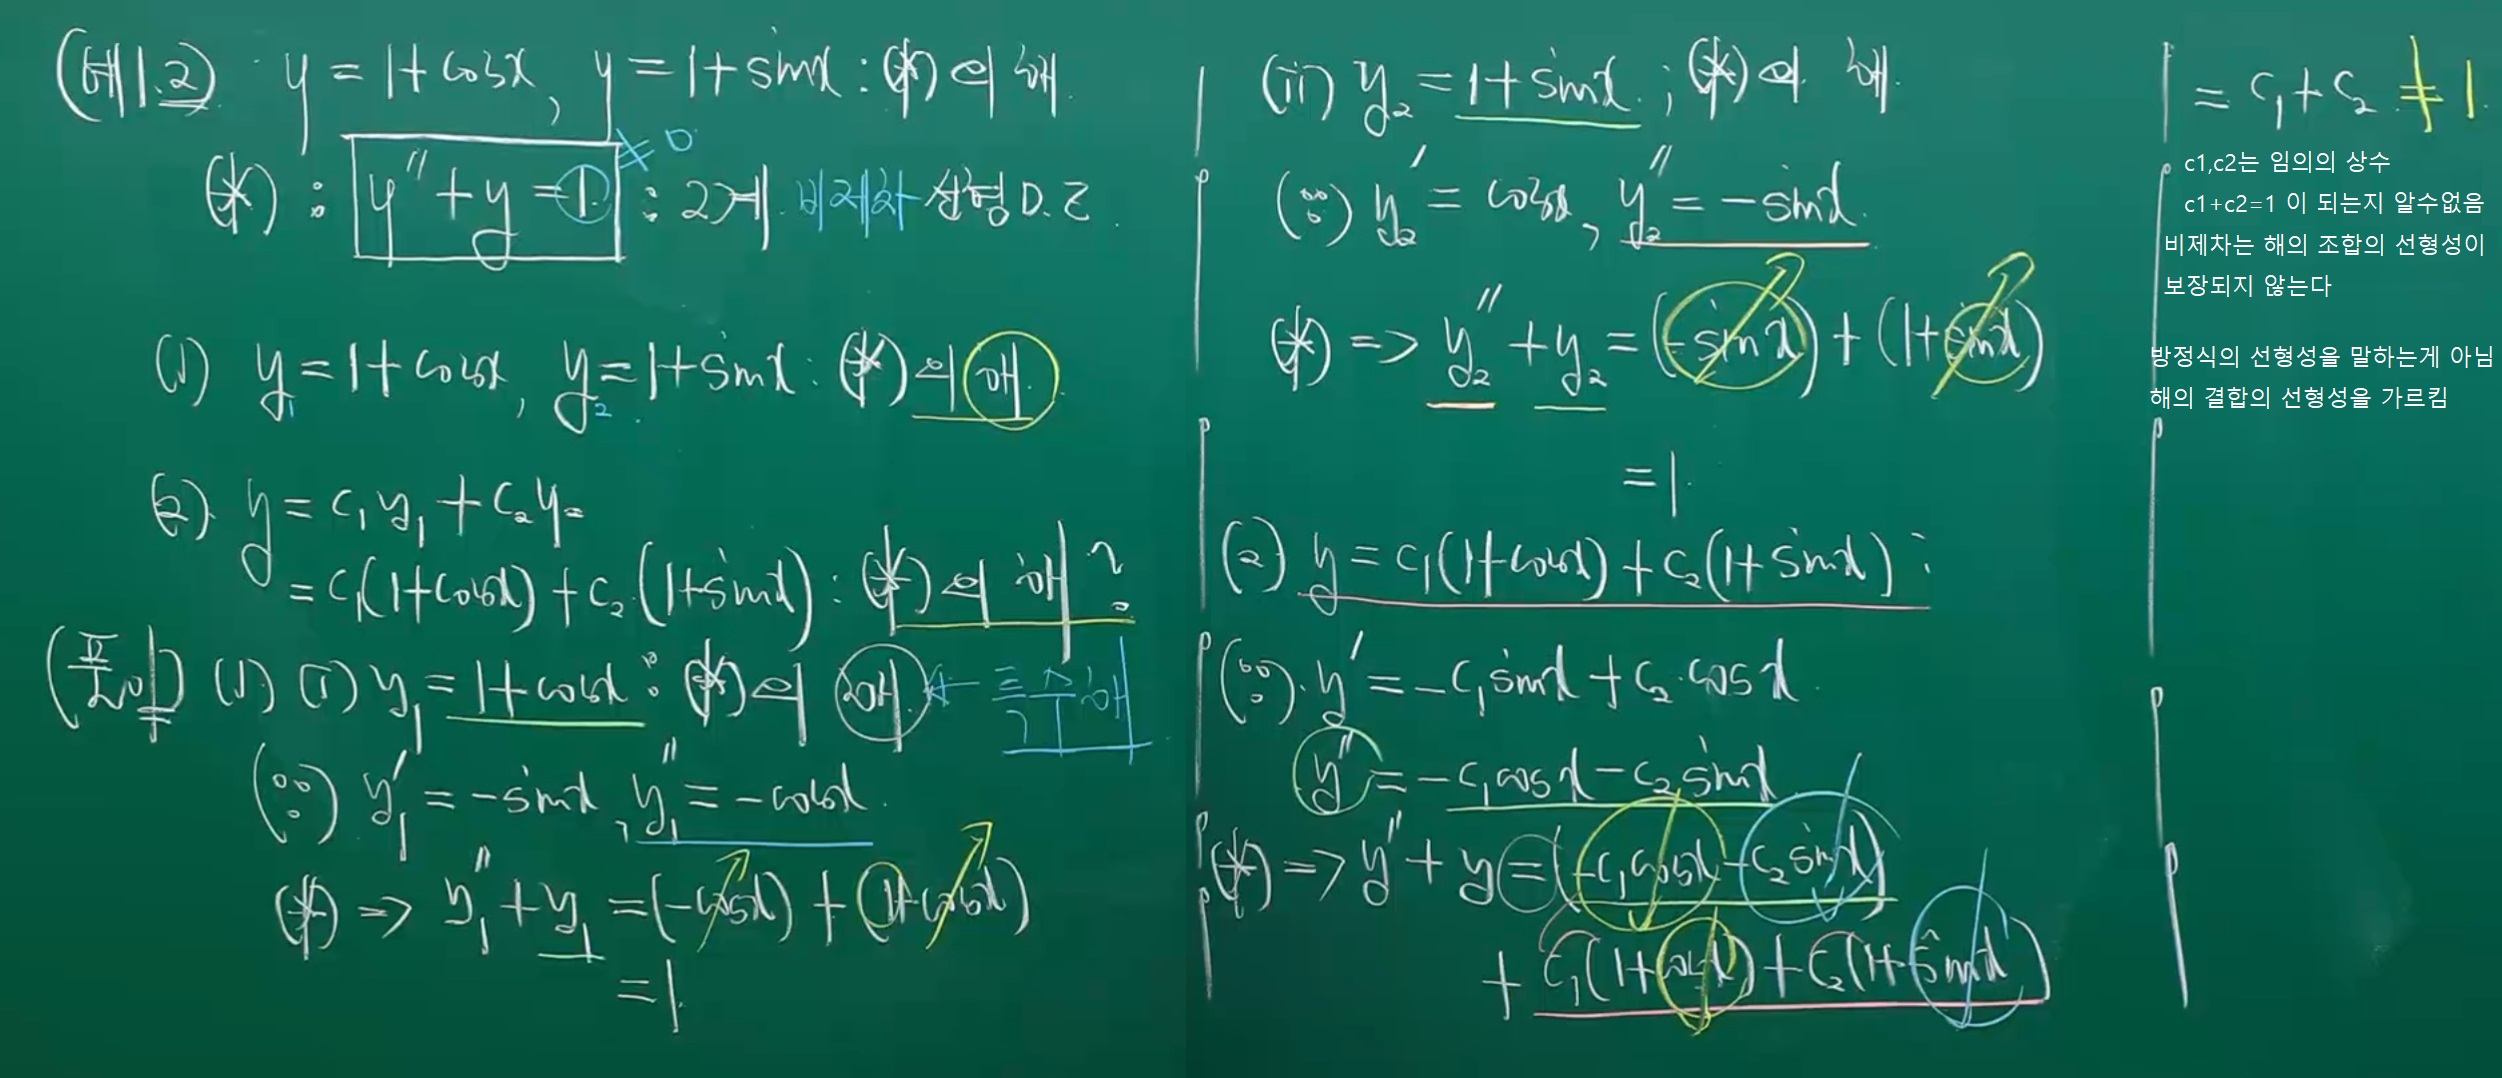 (예1.2) y = 1+cosx, y = 1+sinx : (*)의 해.
(*) : y'' + y = 1 ≠ 0 : 2계 비제차 선형 D.E.
(1) y₁ = 1+cosx, y₂ = 1+sinx : (*)의 해.
(2) y = c₁y₁ + c₂y₂
= c₁(1+cosx) + c₂(1+sinx) : (*)의 해?
(풀이) (1) (i) y₁ = 1+cosx : (*)의 해. ← 특수해
(∵) y₁' = -sinx, y₁'' = -cosx.
(*) => y₁'' + y₁ = (-cosx) + (1+cosx)
= 1.
(ii) y₂ = 1+sinx. ; (*)의 해.
(∵) y₂' = cosx, y₂'' = -sinx.
(*) => y₂'' + y₂ = (-sinx) + (1+sinx)
= 1.
(2) y = c₁(1+cosx) + c₂(1+sinx) :
(∵). y' = -c₁sinx + c₂.cosx.
y'' = -c₁cosx - c₂sinx
(*) => y'' + y = (-c₁cosx - c₂sinx)
+ c₁(1+cosx) + c₂(1+sinx)
= c₁ + c₂ ≠ 1.
c1,c2는 임의의 상수
c1+c2=1 이 되는지 알수없음
비제차는 해의 조합의 선형성이
보장되지 않는다
방정식의 선형성을 말하는게 아님
해의 결합의 선형성을 가르킴